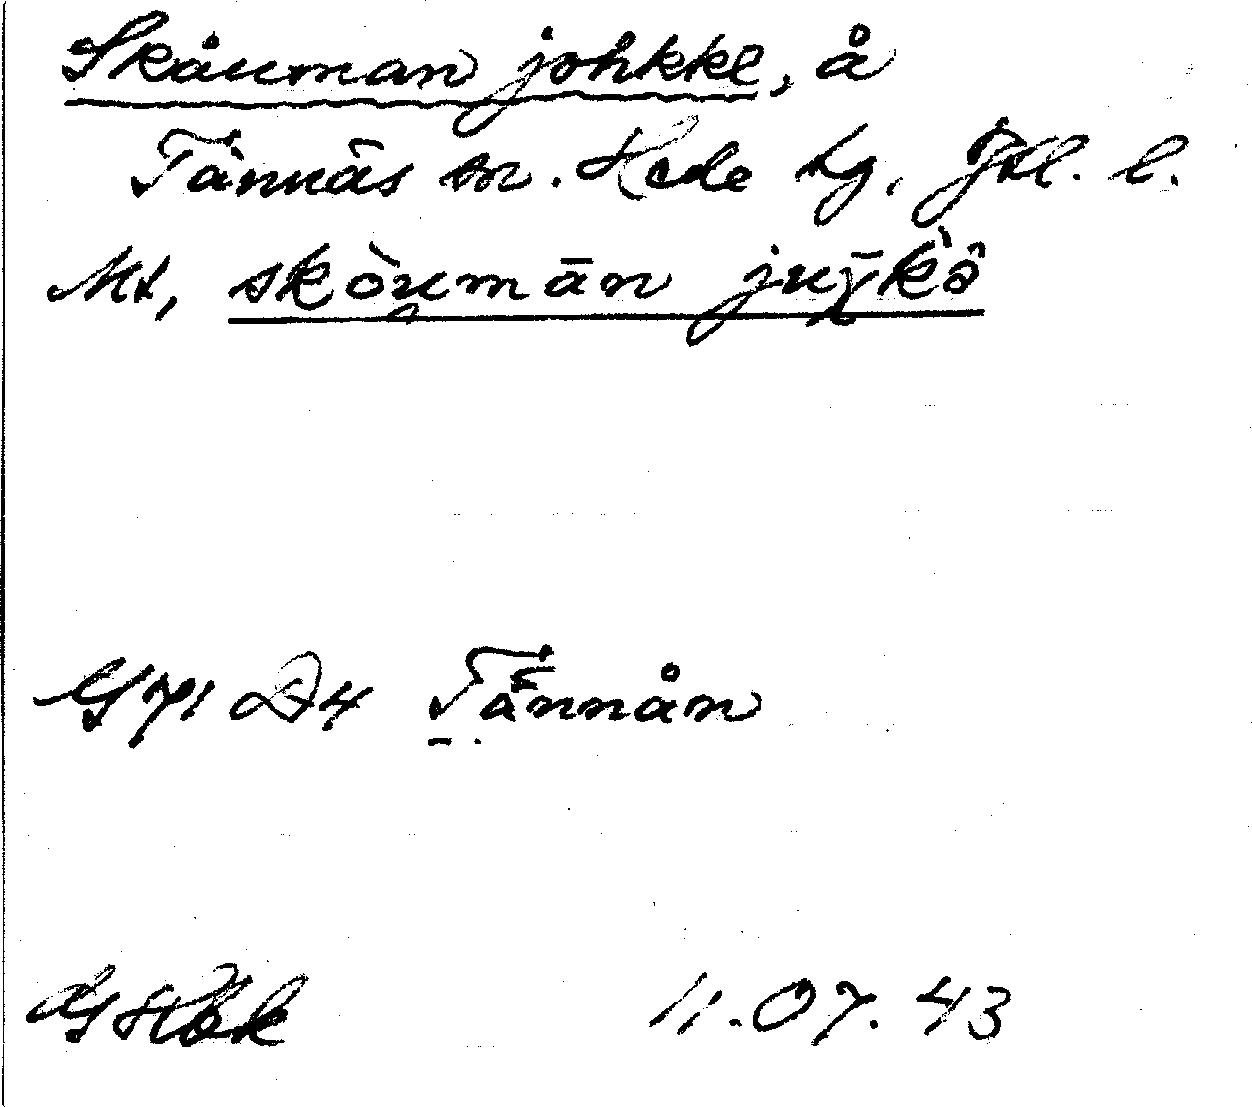 Skåuman johkke, å
Tännäs sn. Hede tg. Jtl. l.
Mt, skòu̯mān juχ̄k̀ə̂
G 71 D4 Tännån
11.07.43